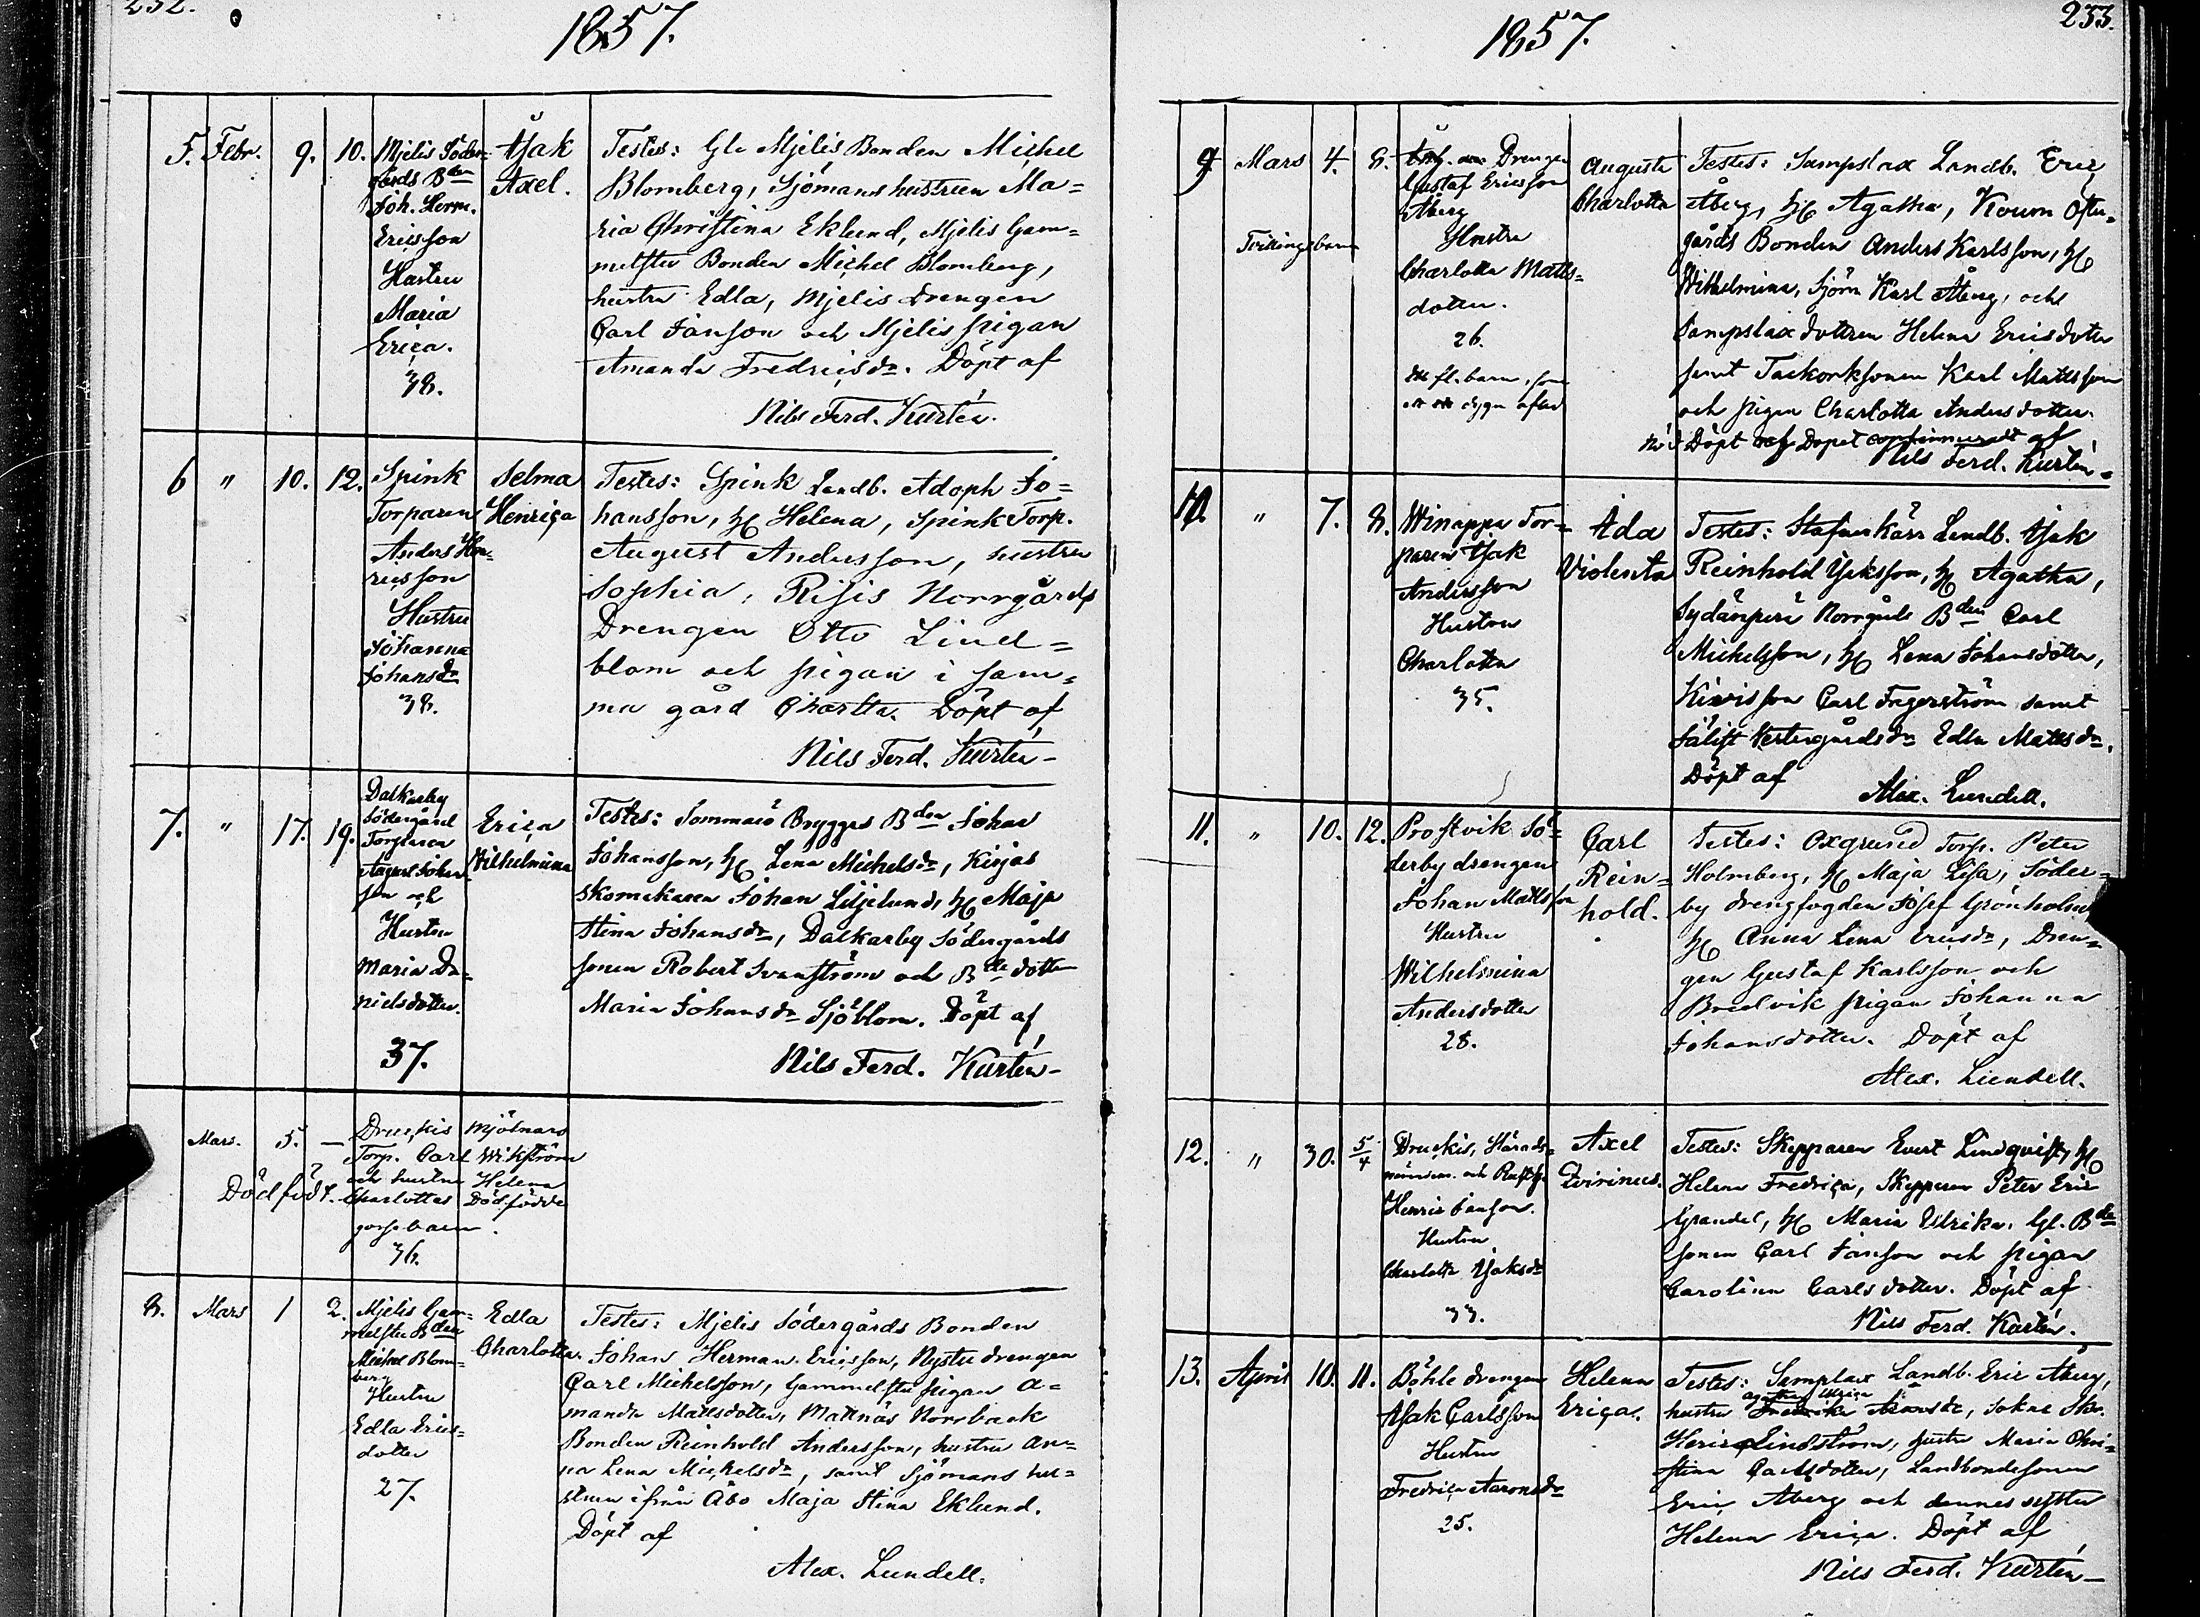 232.
1857.
5. Febr. 9. 10.
Mjelis Söder=
gårds Bden
Joh. Herm.
Ericsson
Hustru
Maria
Erica.
38.
Isak
Axel.
Testes: Gle Mjelis Bonden Michel
Blomberg, Sjömans hustrun Ma=
ria Christina Eklund, Mjelis Gam=
melstu Bonden Michel Blomberg,
hustru Edla, Mjelis Drengen
Carl Janson och Mjelis pigan
Amanda Fredricsdr. Döpt af
Nils Ferd. Kurtén.
6 " 10. 12.
Spink
Torparen
Anders Hen=
ricsson
Hustru
Johanna
Johansdr
38.
Selma
Henrica
Testes: Spink Landb. Adoph Jo=
hansson, H Helena, Spink Torp.
August Andersson, hustru
Sophia, Risis Norrgårds
Drengen Otto Lind=
blom och pigan i sam=
ma gård Chartta. Döpt af
Nils Ferd. Kurtén
7. " 17. 19.
Dalkarby
Södergård
Torparen
August Johans
son och
Hustru
Maria Da=
nielsdotter.
37.
Erica
Wilhelmina
Testes: Sommarö Brygges Bden Johan
Johansson, H Lena Michelsdr, Kirjais
skomakaren Johan Liljelund, H Maja
Stina Johansdr, Dalkarby Södergårds
sonen Robert Svanström och Bde dotter
Maria Johansdr Sjöblom. Döpt af
Nils Ferd. Kurtén
Mars. 5. —
Dödfödt.
Druckis Mjölnars
Torp. Carl Wikström
och hustru Helena
Charlottas Dödfödde
gossebarn.
36.
8. Mars 1 2.
Mjelis Gam=
melstu Bden
Michel Blom=
berg
Hustru
Edla Erics=
dotter
27.
Edla
Charlotta.
Testes: Mjelis Södergårds Bonden
Johan Herman Ericsson, Nystu drengen
Carl Michelsson, Gammelstu pigan A=
manda Mattsdotter, Mattnäs Norrback
Bonden Reinhold Andersson, hustru An=
na Lena Michelsdr, samt Sjömans hu=
strun ifrån Åbo Maja Stina Eklund.
Döpt af
Alex. Lundell.
233.
1857.
9 Mars 4. 8.
Tvillingsbarn
Drengen
Gustaf Ericsson
Åberg
Hustru
Charlotta Matts=
dotter.
26.
Augusta
Charlotta
Testes: Sampslax Landb. Eric
Åberg, H Agatha, Koum Öster=
gårds Bonden Anders Karlsson, H
Wilhelmina, Sjöm Karl Åberg, och
Sampslax dottren Helena Ericsdotter
samt Taskorksonen Karl Mattsson
och pigan Charlotta Andersdotter.
Nöd Döpt och Dopet confirmeradt af
Nils Ferd. Kurtén
10. " 7. 8.
Winappa Tor=
paren Isak
Andersson
Hustru
Charlotta
35.
Ada
Violenta
Testes: Stafnerkärr Landb. Isak
Reinhold Isaksson, H Agatha,
Sydänperä Norrgårds Bden Carl
Michelsson, H Lena Johansdotter,
Carl Fagerström samt
Westergårdsdr Edla Mattsdr.
Döpt af
Alex. Lundell.
11. " 10. 12.
Prostvik Sö=
derby drengen
Johan Mattsson
Hustru
Wilhelmina
Andersdotter
28.
Carl
Rein=
hold.
Testes: Oxgrund Torp. Peter
Holmberg, H Maja Lisa, Söder=
by drengfogden Josef Grönholm
H Anna Lena Ericsdr, Dren=
gen Gustaf Karlsson och
Bredvik pigan Johanna
Johansdotter. Döpt af
Alex. Lundell.
12. " 30. 5/4
Druckis, Härads=
nämdem. och Rusth.
Henric Janson.
Hustru
Charlotta Isaksdr
33.
Axel
Qvirinus.
Testes: Skepparen Evert Lindqvist, H
Helena Fredrica, Skepparen Peter Eric
Grandel, H Maria Ulrika, Gl. Bde
sonen Carl Janson och pigan
Carolina Carlsdotter. Döpt af
Nils Ferd. Kurtén.
13. April 10. 11.
Böhle drengen
Isak Carlsson
Hustru
Fredrica Aaronsdr
25.
Helena
Erica.
Testes: Samplax Landb. Eric Åberg,
hustru Agatha Fredrika, Sokne Skr.
Henric Lindström, hustru Maria Chri=
stina Carlsdotter, Landbondesonen
Eric Åberg och dennes syster
Helena Erica. Döpt af
Nils Ferd. Kurtén